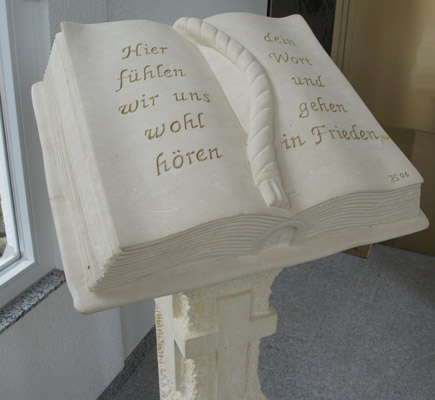 Hier
fühlen
wir uns
wohl
hören
dein
Wort
und
gehen
in Frieden
JS 06